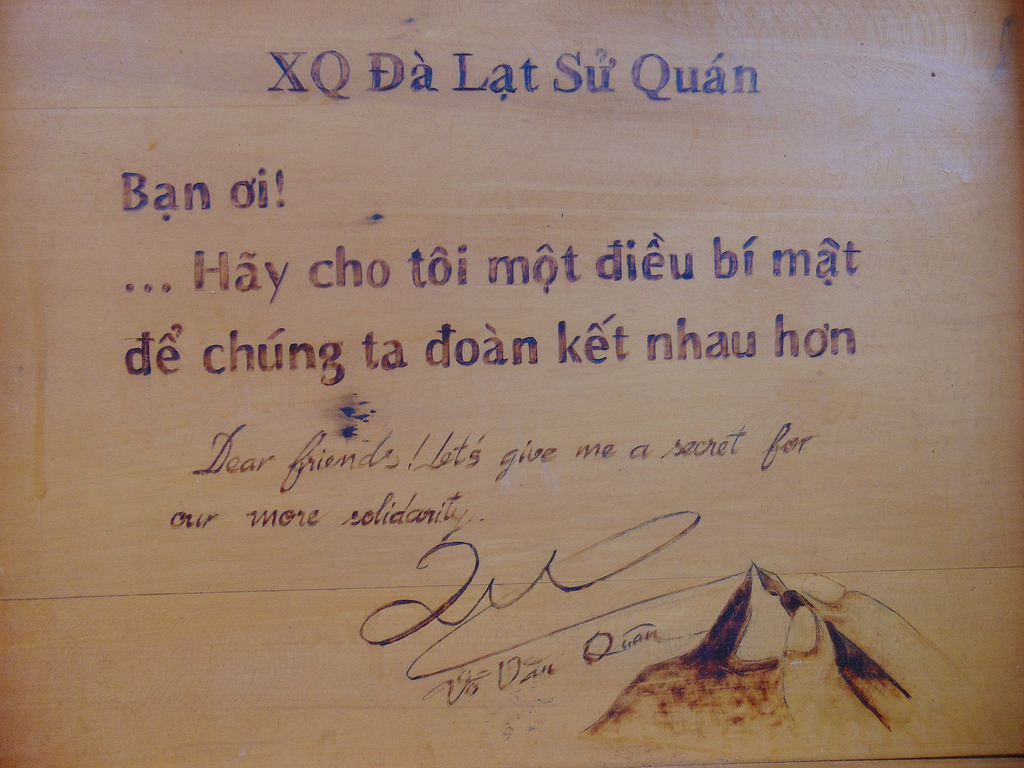 XQ Đà Lạt Sử Quán
Bạn ơi!
... Hãy cho tôi một điều bí mật
để chúng ta đoàn kết nhau hơn
Dear friends! Let's give me a secret for
our more solidarity.
Võ Văn Quân